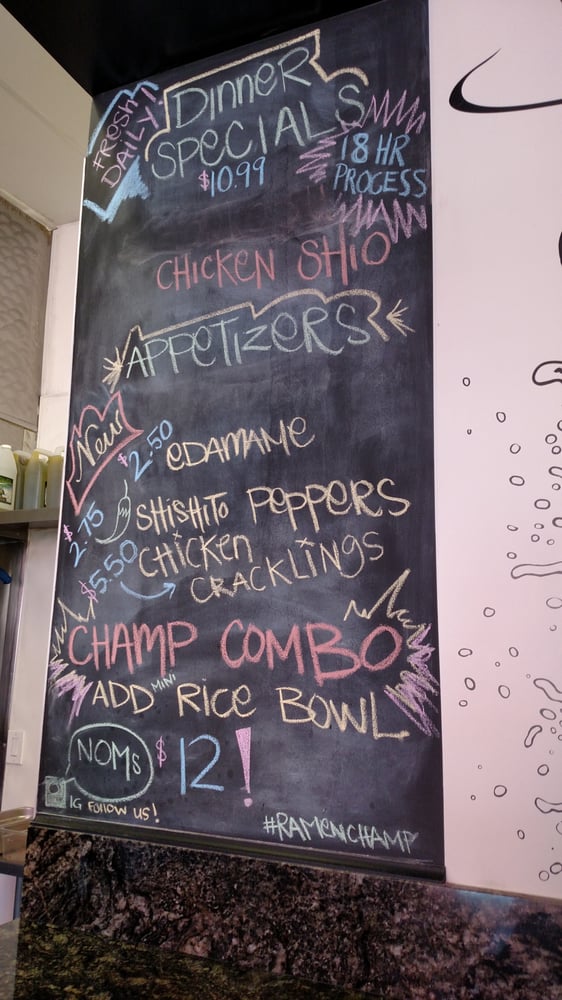 FRESH!
DAILY!
DINNER
SPECIALS
$10.99
18 HR
PROCESS
CHICKEN SHIO
APPETIZERS
New
$2.50 EDAMAME
$2.75 SHISHITO PEPPERS
$5.50 CHICKEN
CRACKLINGS
CHAMP COMBO
ADD MINI RICE BOWL
NOMS $12!
IG FOLLOW US!
#RAMENCHAMP